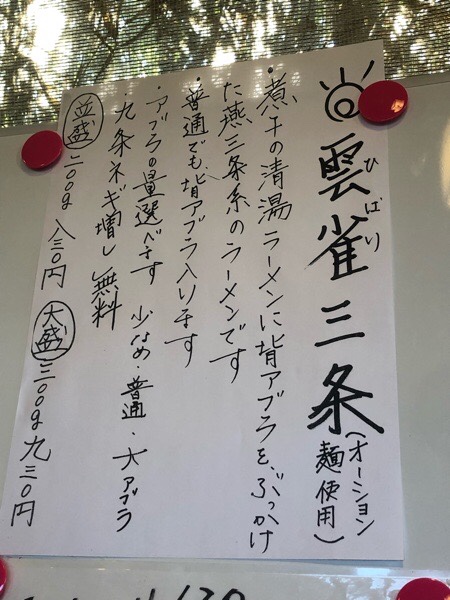 雲雀三条
ひばり
(オーション
麺使用)
・煮干の清湯ラーメンに背アブラを、ぶっかけ
た燕三条系のラーメンです
・普通でも、背アブラ入ります
・アブラの量選べます 少なめ・普通・大アブラ
・九条ネギ増し無料
並盛 二〇〇g 八三〇円 大盛 三〇〇g 九三〇円